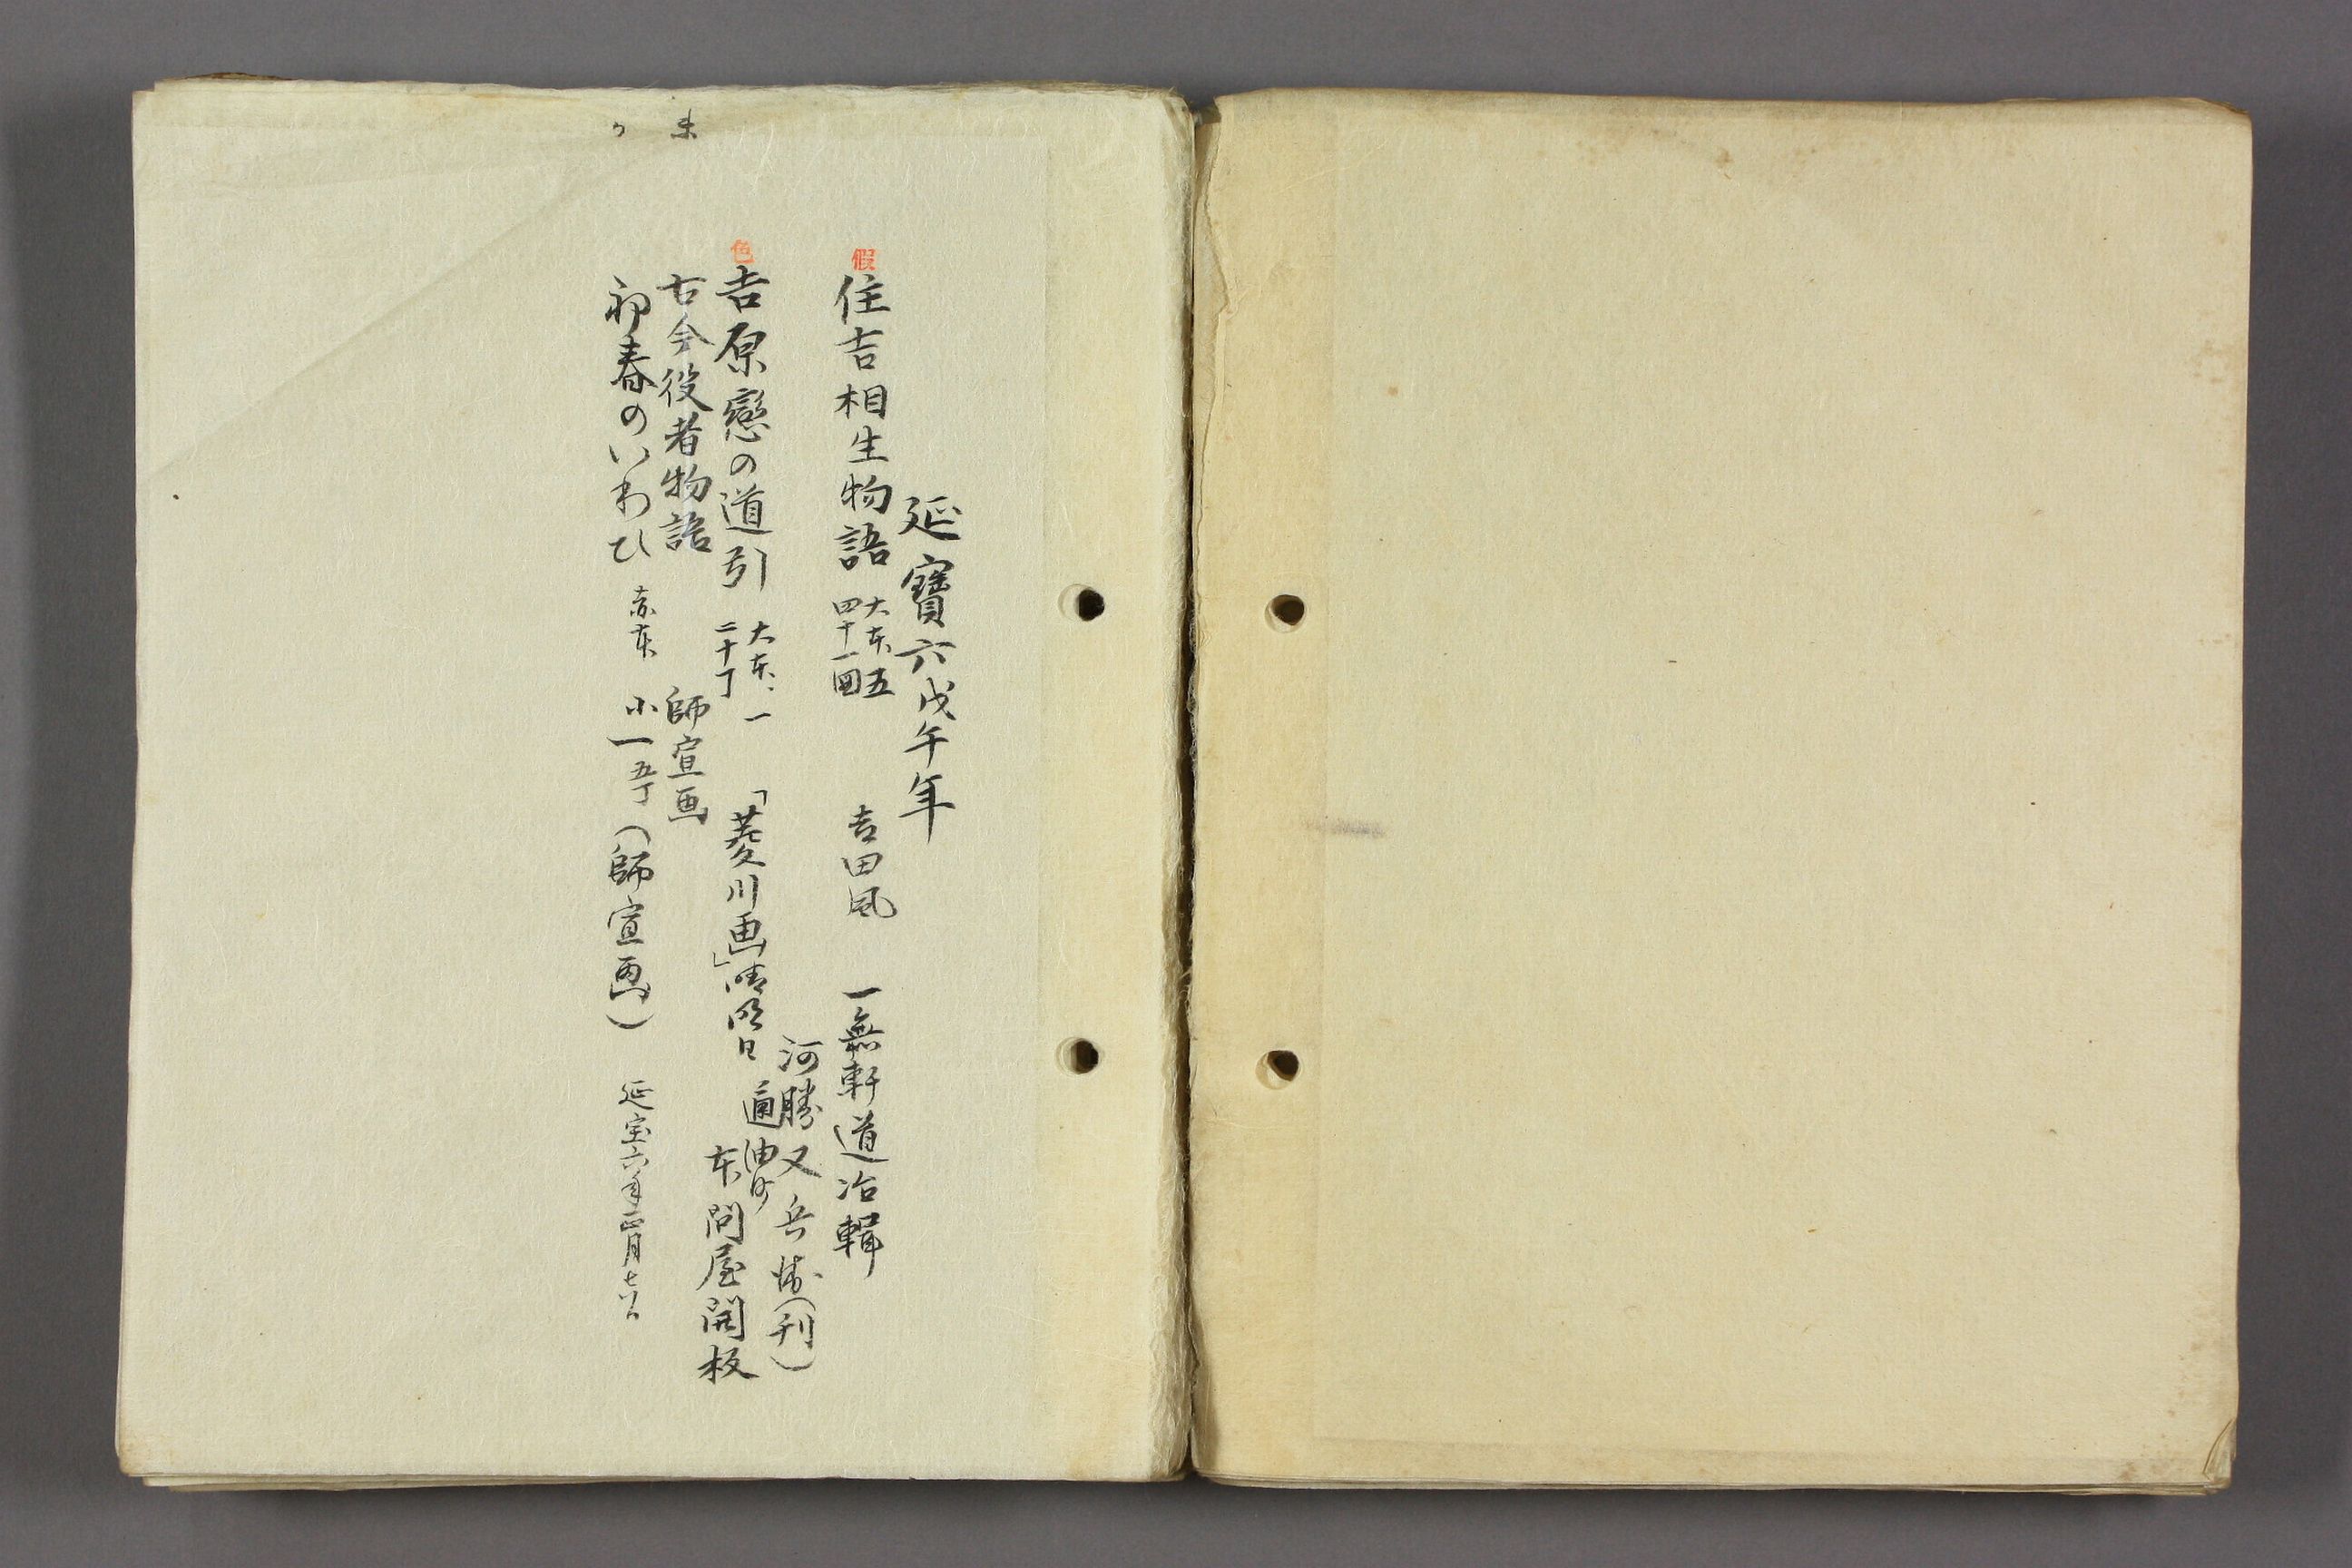 延寶六戊午年
假
住吉相生物語 大本五 四十一図 吉田風 一無軒道冶輯
河勝又兵衛(刊)
色
吉原戀の道引 大本、一 二十丁 「菱川画」 通油町 本問屋開板
古今役者物語 師宣画
初春のいわひ 赤本 小一 五丁 (師宣画) 延宝六年正月七日